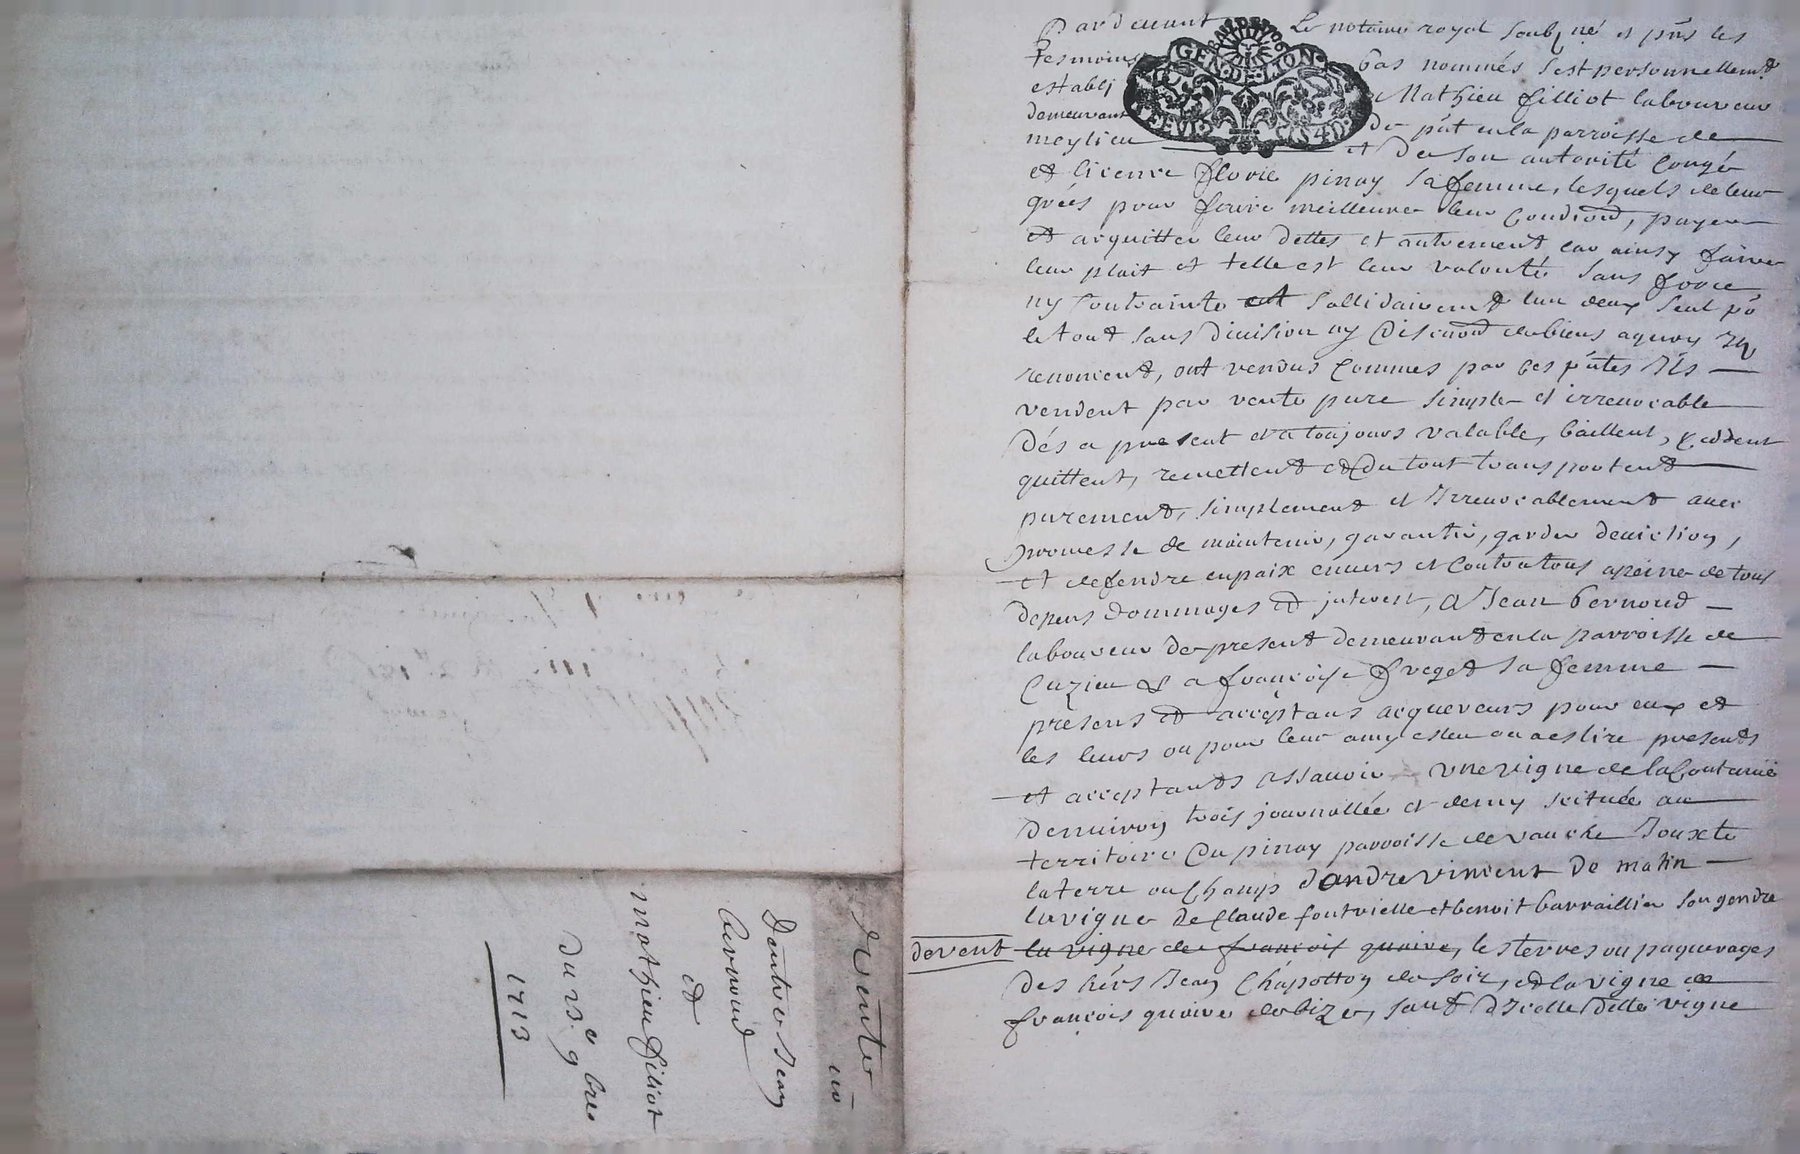 Vente
Dentre Jean
Bernoud
et
mathieu filliot
du 13e 9bre
1713
Pardevant Le notaire royal soubzné et pñs les
tesmoins bas nommés s'est personnellemt
establi Mathieu filliot laboureur
demeurant de pñt en la parroisse de
meylieu et de son autorité Congé
et licence florie pinay sa femme, lesquels de leur
grées pour faire meilleure leur Condiond, payer
et acquitter leur dettes et autrement car ainsy faire
leur plait et telle est leur volonté sans force
ny Contrainte sollidairement lun deux seul po
le tout sans division ny discuond de biens a quoy Ilz
renoncent, ont vendus Commes par ces pñtes Ils
vendent par vente pure simple et irrevocable
Dés a present et a toujours valable, baillent, Ceddent
quittent, remettent et du tout transportent
purement, simplement et Irrevocablement avec
promesse de maintenir, garantir, garder deviction,
et defendre en paix envers et Contre tous a peine de tous
depens dommages et interest, A Jean bernoud
laboureur de present demeurant en la parroisse de
Cuzieu & a françoise freget sa femme
presens et acceptans acquereurs pour eux et
les leurs ou pour leur amy esleu ou a eslire presents
et acceptants assavoir une vigne de la Contenüe
denviron trois journallée et demy scituée au
territoire du pinay parroisse de vauche Jouxte
la terre ou Champ dandre vincent de matin
la vigne de Claude fontvielle et benoit barraillier son gendre
devent la vigne de francoix quaire, les terres ou paquerages
des hérs Jean Chapotton de soir, et la vigne de
françois quaire de bize, sauf d'Icelle ditte vigne
GEN·DE·LION